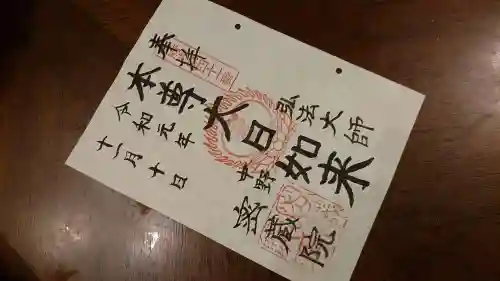 奉拝
弘法大師
本尊大日如来
中野
密蔵院
令和元年
十一月十日